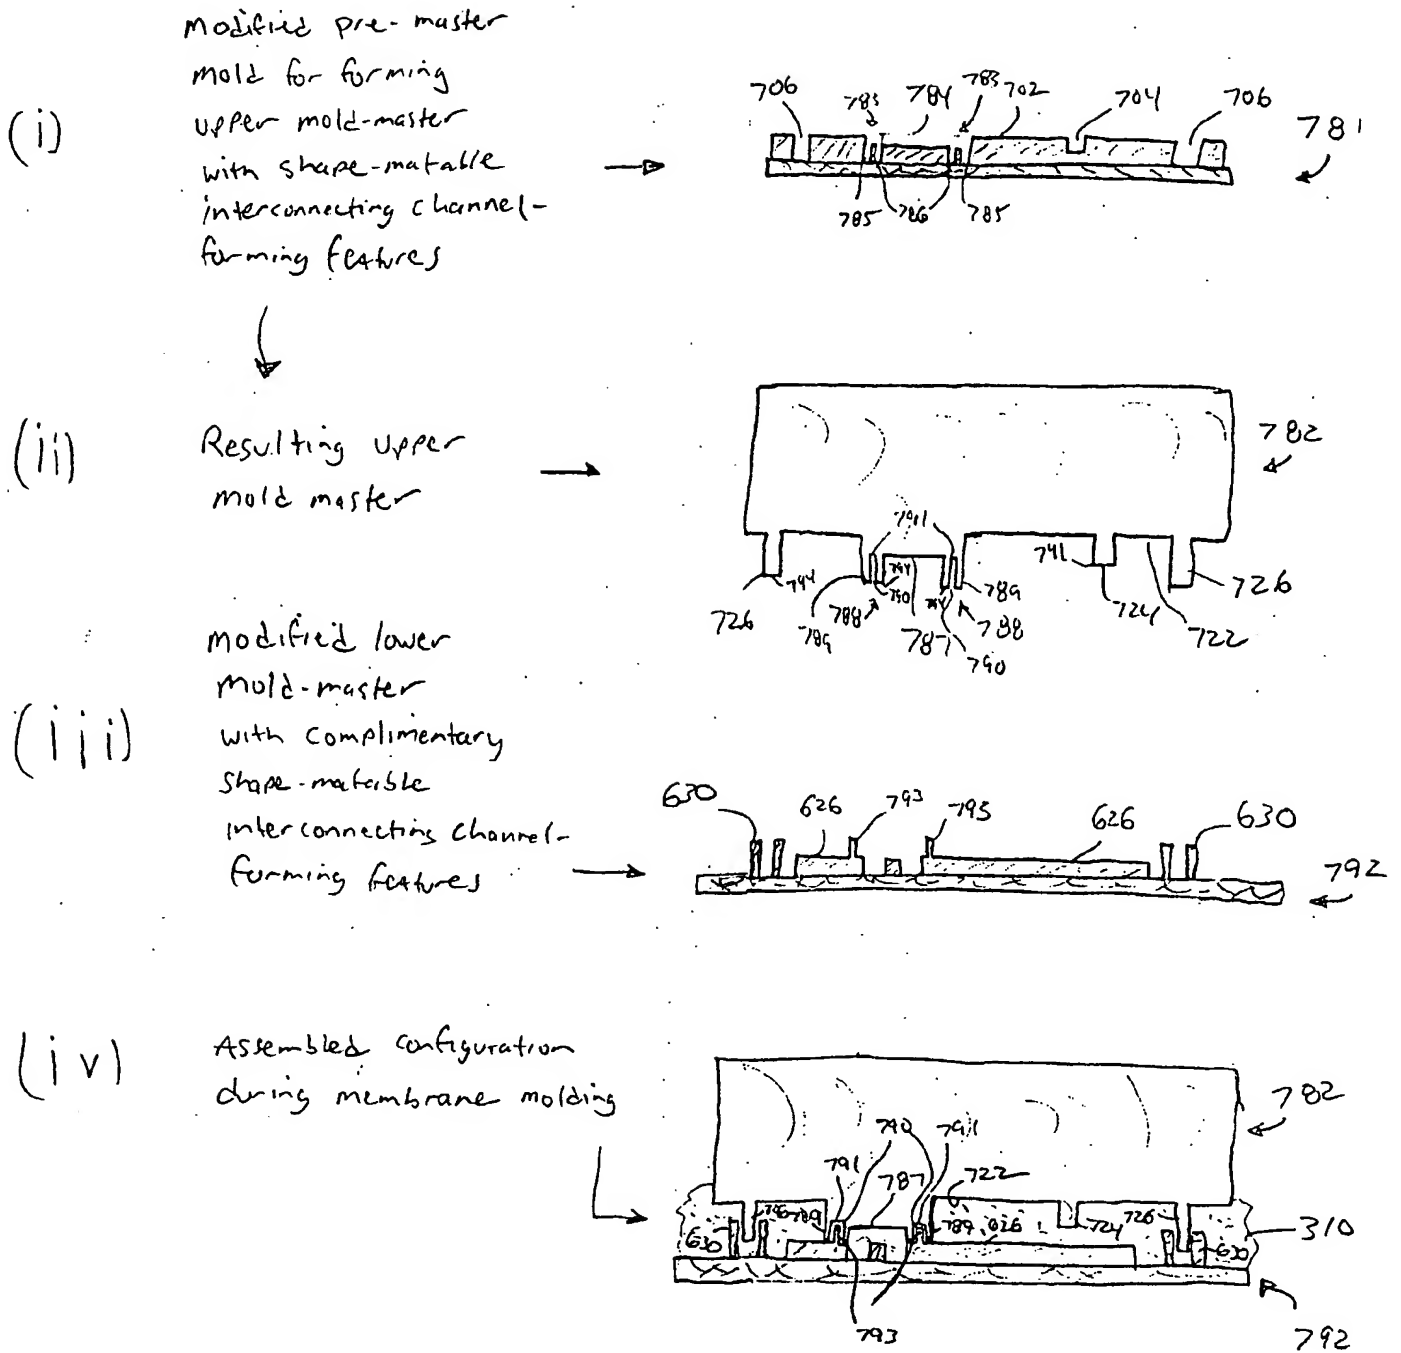 (i)
Modified pre-master
mold for forming
upper mold-master
with shape-matable
interconnecting channel-
forming features
706
783
784
783
702
704
706
781
785
786
785
(ii)
Resulting upper
mold master
782
791
741
794
794
790
794
789
726
726
789
788
787
788
790
724
722
(iii)
modified lower
mold-master
with complimentary
shape-matable
interconnecting channel-
forming features
630
626
793
793
626
630
792
(iv)
Assembled configuration
during membrane molding
782
790
791
791
787
722
726
789
789
626
724
726
630
630
310
793
792